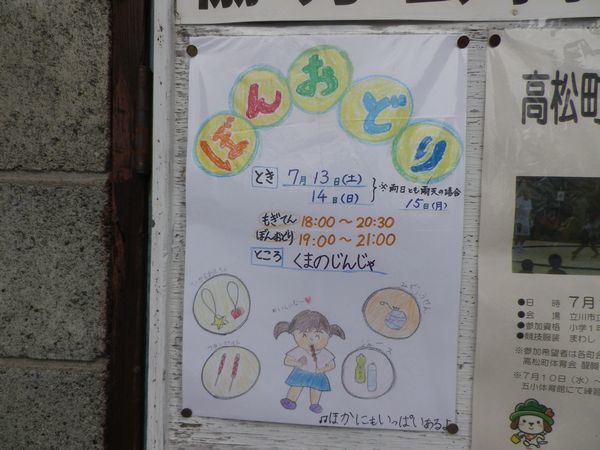 ぼんおどり
とき 7月13日(土)
14日(日)
※両日とも雨天の場合
15日(月)
もぎてん 18:00～20:30
ぼんおどり 19:00～21:00
ところ くまのじんじゃ
おいしいなー♥
フランクフルト
ジュース
♫ほかにもいっぱいあるよ
高松町
●日　時　7月
●会　場　立川市立
●参加資格　小学1年
●競技服装　まわし
※参加希望者は各町会
高松町体育会
※7月10日（水）～
五小体育館にて練習